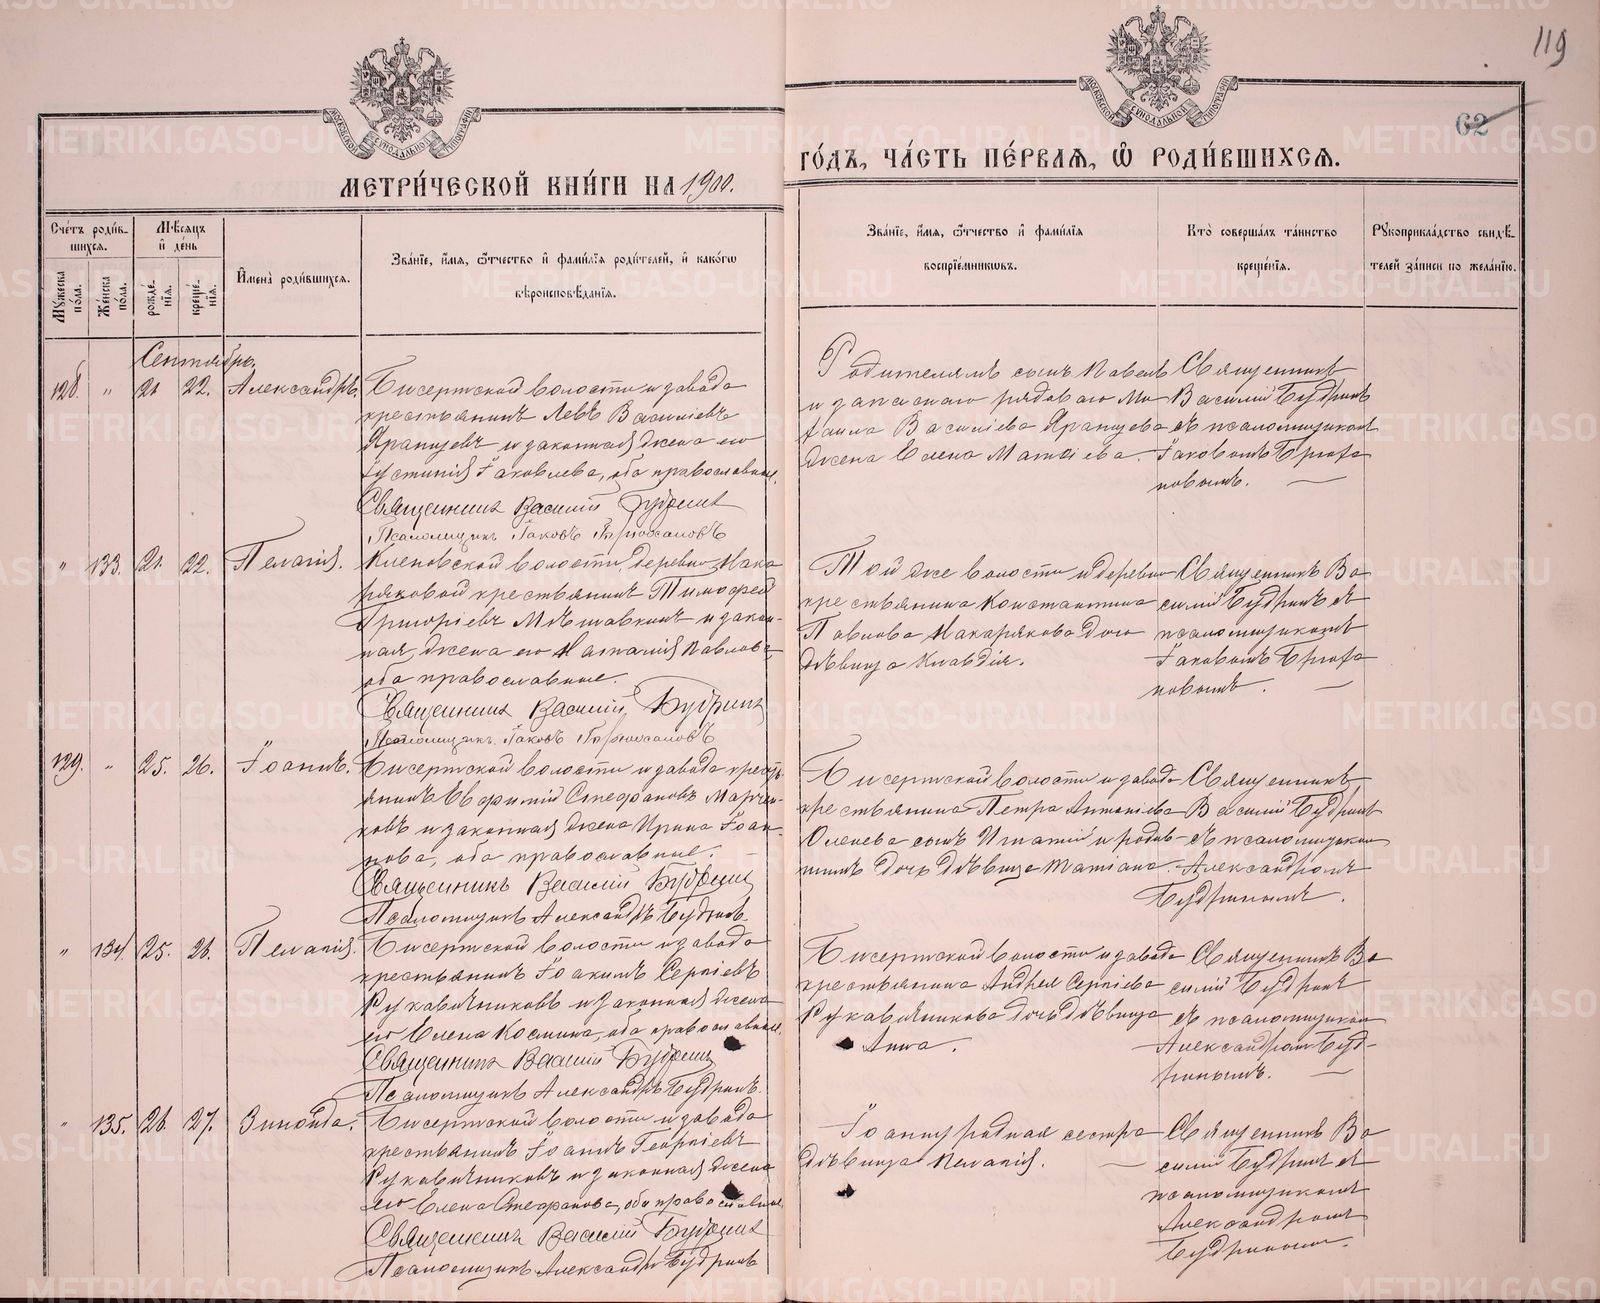 119
62
МЕТРИ́ЧЕСКОЙ КНИ́ГИ НА 1900.
ГО́ДЪ, ЧА́СТЬ ПЕ́РВАЯ, Ѡ҆ РОДИ́ВШИХСЯ.
Сче́тъ роди́в-
шихся.
Мѣ́сяцъ
и҆ де́нь
Мꙋ́жеска по́ла.
Же́нска по́ла.
рожде́-
нїя.
креще́-
нїя.
И҆мена̀ роди́вшихся.
Зва́нїе, и҆́мя, ѻ҆́тчество и҆ фами́лїя роди́телей, и҆ како́гѡ
вѣроисповѣ́данїя.
Зва́нїе, и҆́мя, ѻ҆́тчество и҆ фами́лїя
воспрїе́мникѡвъ.
Кто̀ соверша́лъ та́инство
креще́нїя.
Рꙋкоприкла́дство свидѣ́-
телей за́писи по жела́нїю.
Сентябрь.
128. " 21 22. Александръ.
Бисертской волости и завода
крестьянинъ Левъ Васильевъ
Яранцевъ и законная жена его
Іустинія Іаковлева, оба православные.
Священникъ Василій Будринъ
Псаломщикъ Іаковъ
Родителямъ сынъ Павелъ
и запаснаго рядоваго Ми
хаила Васильева Яранцева
жена Елена Матѳіева.
Священникъ
Василій Будринъ
съ псаломщикомъ
Іаковомъ
" 133. 21. 22. Пелагія.
Кленовской волости, деревни Мака
ряковой крестьянинъ Тимофей
Григоріевъ Мѣшавкинъ и закон-
ная жена его Наталія Павлова,
оба православные.
Священникъ Василій Будринъ
Псаломщикъ Іаковъ
Той же волости и деревни
крестьянина Константина
Павлова Макарякова дочь
дѣвица Клавдія.
Священникъ Ва
силій Будринъ съ
псаломщикомъ
Іаковомъ
129. " 25. 26. Іоаннъ.
Бисертской волости и завода кресть
янинъ Евфимій Стефановъ Марчен-
ковъ и законная жена Ирина Іоан-
нова, оба православные.
Священникъ Василій Будринъ
Псаломщикъ Александръ Будринъ.
Бисертской волости и завода
крестьянина Петра Антоніева
Оленева сынъ Игнатій и
дочь дѣвица Татіана.
Священникъ
Василій Будринъ
съ псаломщикомъ
Александромъ
Будринымъ.
" 134. 25. 26. Пелагія.
Бисертской волости и завода
крестьянинъ Іоакимъ Сергіевъ
Рукавичниковъ и законная жена
его Елена Космина, оба православные.
Священникъ Василій Будринъ
Псаломщикъ Александръ Будринъ.
Бисертской волости и завода
крестьянина Андрея Сергіева
Рукавичникова дочь дѣвица
Анна.
Священникъ Ва
силій Будринъ
съ псаломщикомъ
Александромъ Буд-
ринымъ.
" 135. 26. 27. Зинаида.
Бисертской волости и завода
крестьянинъ Іоаннъ Георгіевъ
Рукавичниковъ и законная жена
его Елена Стефанова, оба православные
Священникъ Василій Будринъ
Псаломщикъ Александръ Будринъ
Іоанну родная сестра
дѣвица Пелагія.
Священникъ Ва
силій Будринъ съ
псаломщикомъ
Александромъ
Будринымъ.
METRIKI.GASO-URAL.RU